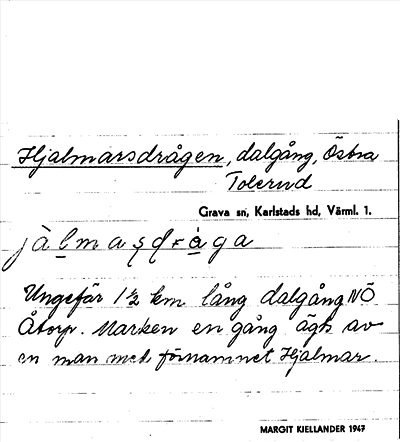 Hjalmarsdrågen, dalgång, Östra
Tolerud
Grava sn, Karlstads hd, Värml. 1.
jàlmaṣdråga
Ungefär 1½ km lång dalgång NÖ
Åtorp. Marken en gång ägts av
en man med förnamnet Hjalmar.
MARGIT KIELLANDER 1947